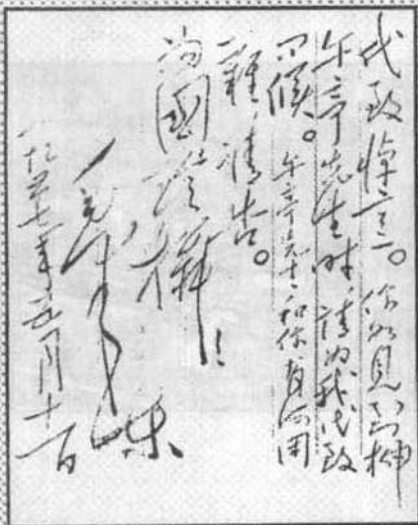 代致悼意。你如見到柳
午亭先生时，請为我代致
问候。午亭先生和你有何困
難，請告。
为國珍攝！
毛泽东
一九五七年五月十一日